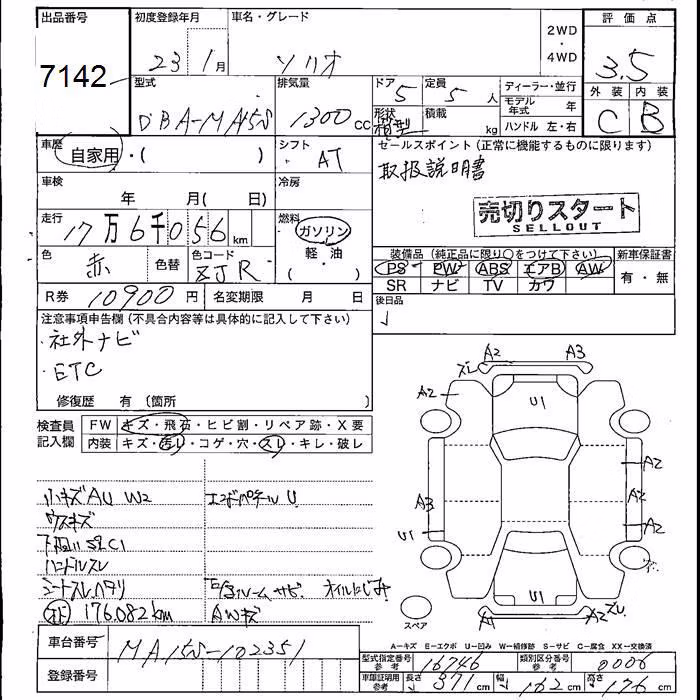 出品番号
7142
初度登録年月
23 1月
車名・グレード
ソリオ
2WD
・
4WD
評価点
3.5
外装 内装
C B
型式
DBA-MA15S
排気量
1300cc
ドア
5
定員
5人
形状
箱型
積載
kg
ディーラー・並行
モデル年式 年
ハンドル 左・右
車歴
自家用・( )
シフト
AT
セールスポイント(正常に機能するものに限ります)
取扱説明書
車検
年 月( 日)
冷房
売切りスタート
SELLOUT
走行
17万6千056km
燃料
ガソリン
軽・油
( )
装備品(純正品に限り○をつけて下さい) 新車保証書
PS PW ABS エアB AW
SR ナビ TV カワ
有・無
色
赤
色替
色コード
ZJR
R券 10900円
名変期限 月 日
後日品
注意事項申告欄(不具合内容等は具体的に記入して下さい)
・社外ナビ
・ETC
修復歴 有(箇所
検査員記入欄
FW キズ・飛石・ヒビ割・リペア跡・X要
内装 キズ・汚レ・コゲ・穴・スレ・キレ・破レ
小キズAU W2
エンドパネルU
ウスキズ
下廻りS2C1
ハンドルスレ
シートスレヘタリ
オイルにじみ
176.082km
AWキズ
車台番号
MA15S-102351
登録番号
スレ A2 A3
A2
U1
A2
A3
A2
U1
A2
U1
A1
A2 スレ
スペア
A-キズ E-エクボ U-凹み W-補修跡 S-サビ C-腐食 XX-交換済
型式指定番号 参考
16746
類別区分番号 参考
0006
車庫証明用 参考
長さ 371cm
幅 162cm
高さ 176cm